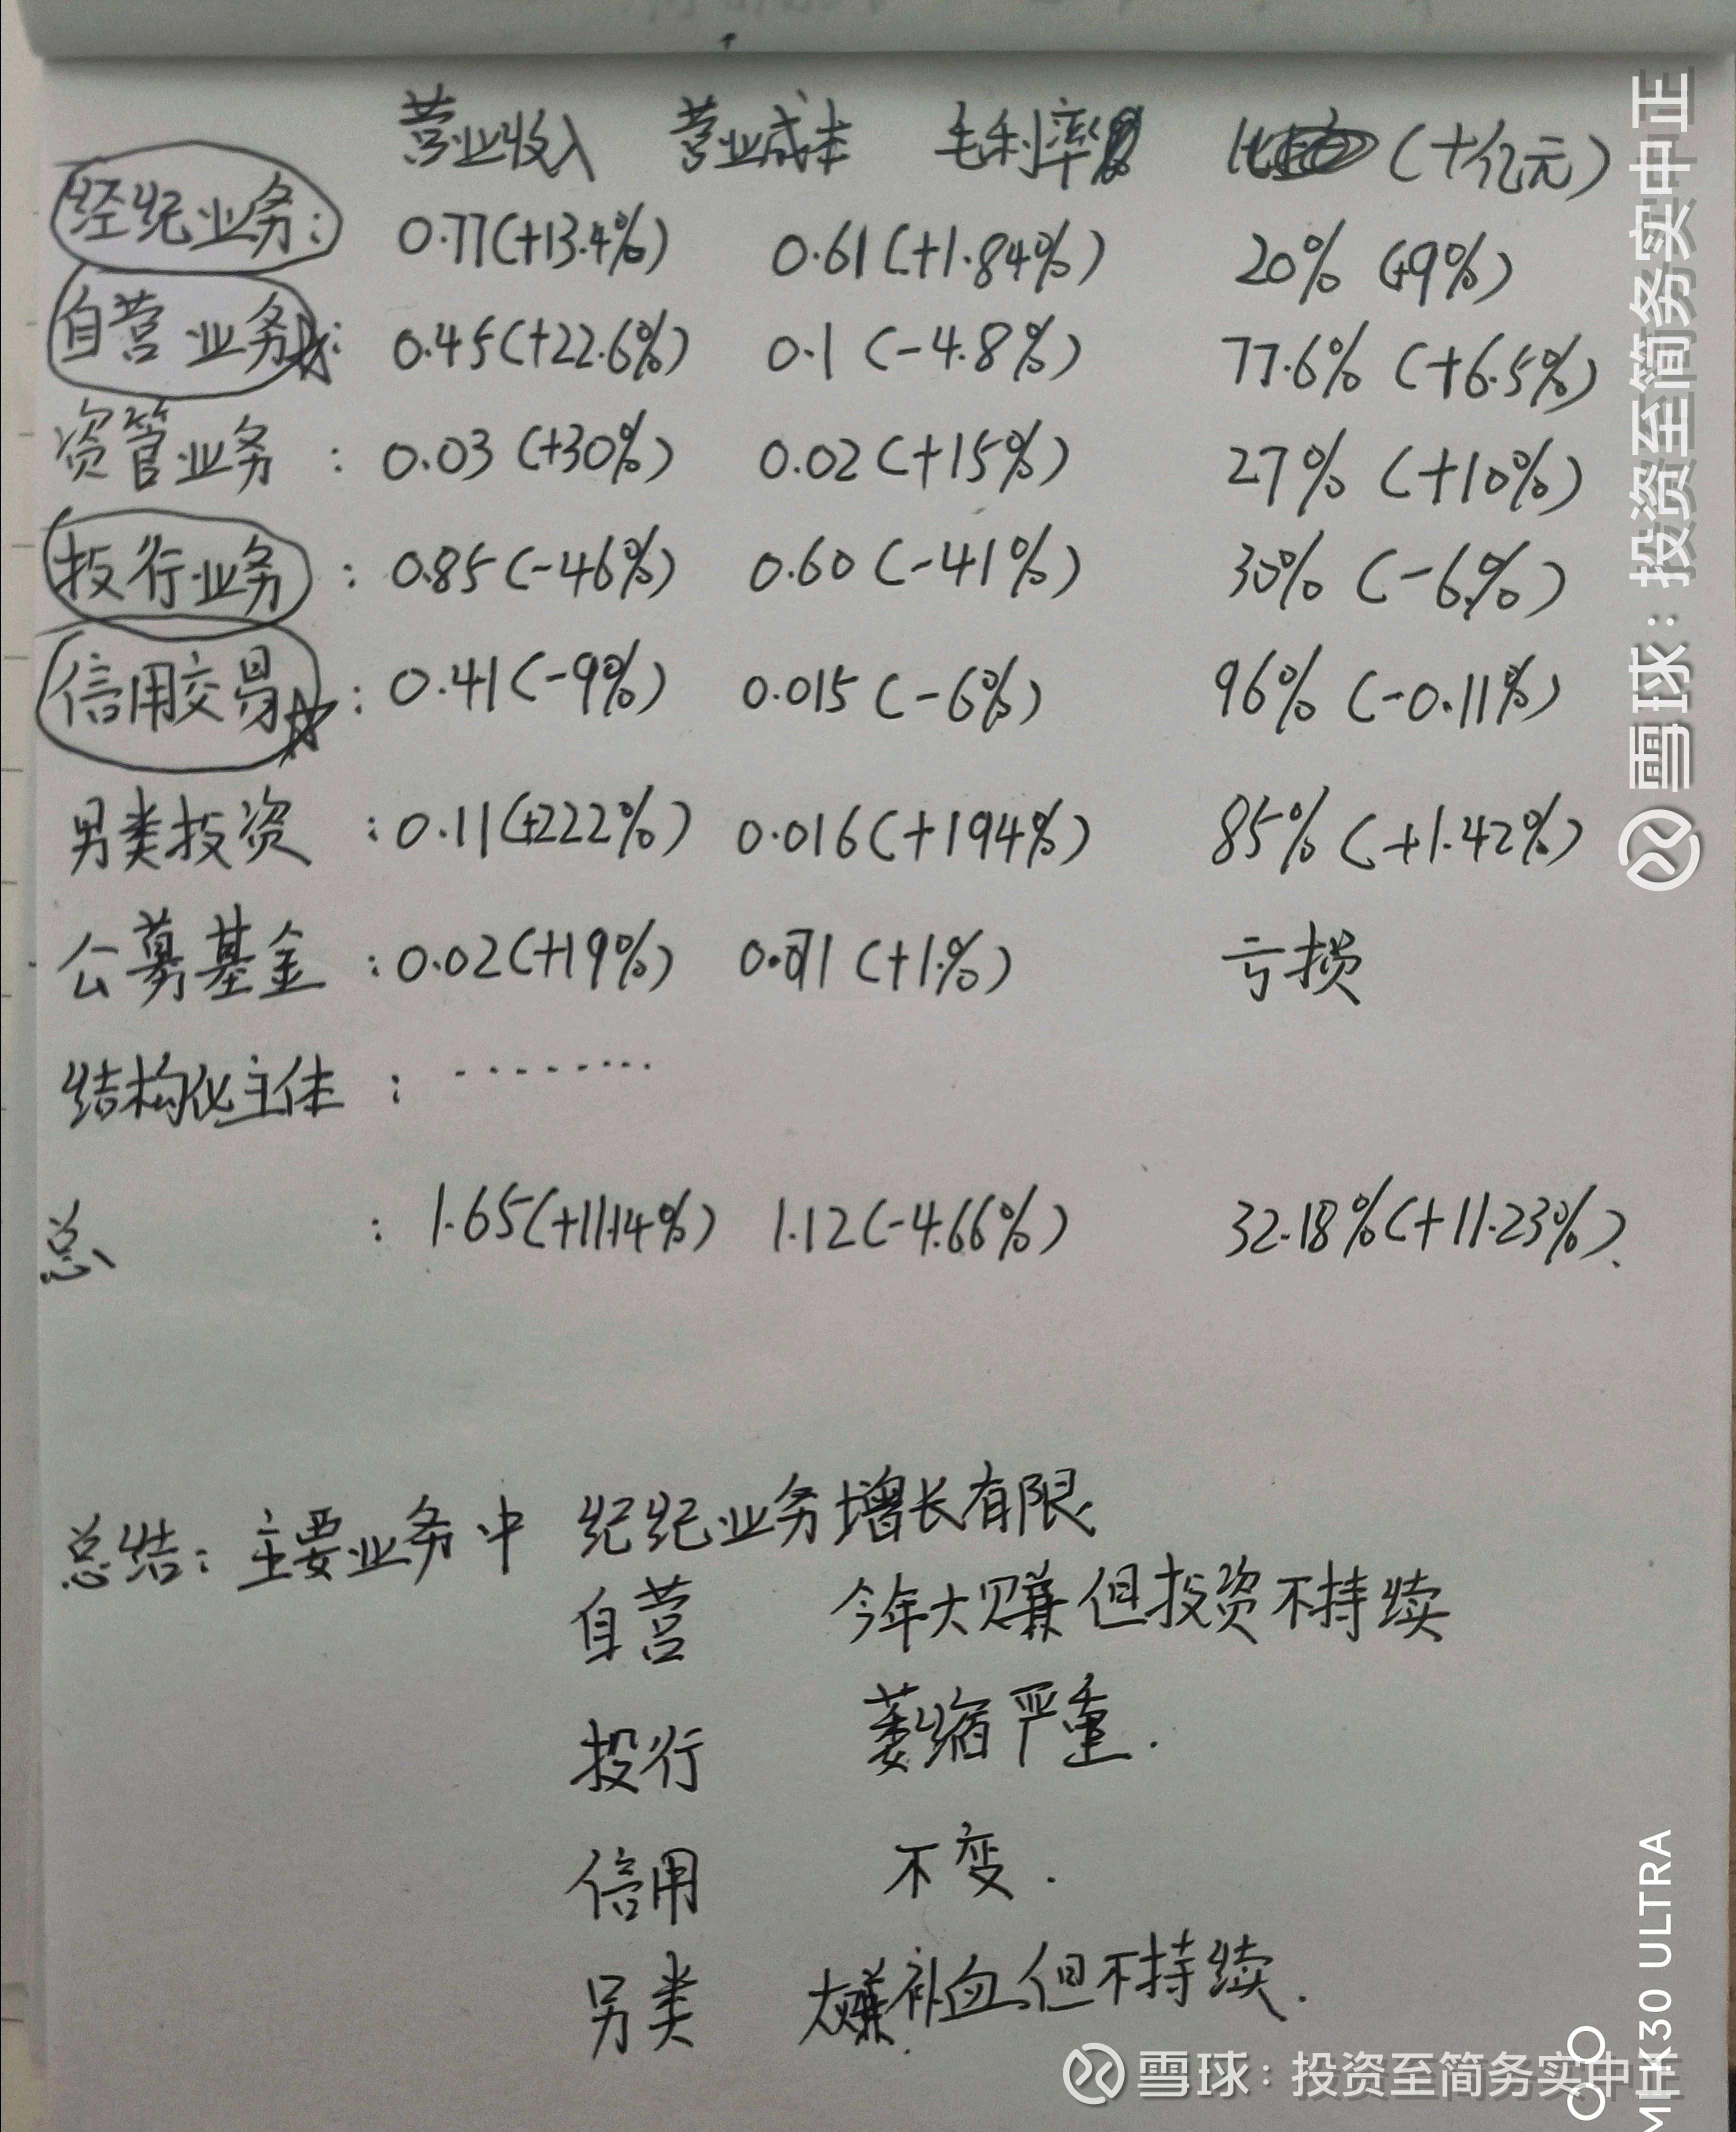 营业收入 营业成本 毛利率 (十亿元)
经纪业务: 0.77(+13.4%) 0.61(+1.84%) 20% (+9%)
自营业务: 0.45(+22.6%) 0.1(-4.8%) 77.6%(+6.5%)
资管业务: 0.03(+30%) 0.02(+15%) 27%(+10%)
投行业务: 0.85(-46%) 0.60(-41%) 30%(-6.%)
信用交易: 0.41(-9%) 0.015(-6%) 96%(-0.11%)
另类投资: 0.11(+222%) 0.016(+194%) 85%(+1.42%)
公募基金: 0.02(+19%) (+1.%) 亏损
结构化主体: ........
总: 1.65(+11.14%) 1.12(-4.66%) 32.18%(+11.23%).
总结: 主要业务中 纪纪业务增长有限.
自营 今年大赚但投资不持续
投行 萎缩严重.
信用 不变.
另类 大赚补血但不持续.
雪球:投资至简务实中正
雪球:投资至简务实中正
MI K30 ULTRA